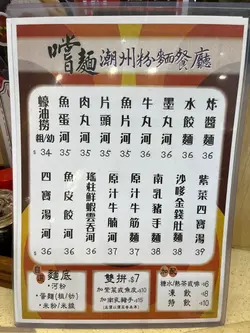 嚐麵 潮州粉麵餐廳
炸醬麵 36
水餃麵 36
墨丸河 36
牛丸河 36
魚片河 35
片頭河 35
肉丸河 35
魚蛋河 35
蠔油撈 粗/幼 34
紫菜四寶湯 39
沙嗲金錢肚麵 38
南乳豬手麵 38
原汁牛筋麵 38
原汁牛腩河 38
瑤柱鮮蝦雲吞河 36
魚皮餃河 36
四寶湯河 36
麵底
・河粉
・蛋麵(粗/幼)
・米粉/米線
雙拼 +$7
加紫菜或魚皮+10
加南乳豬手+10
糖水/熱茶或+6
凍飲 +8
特飲 +10